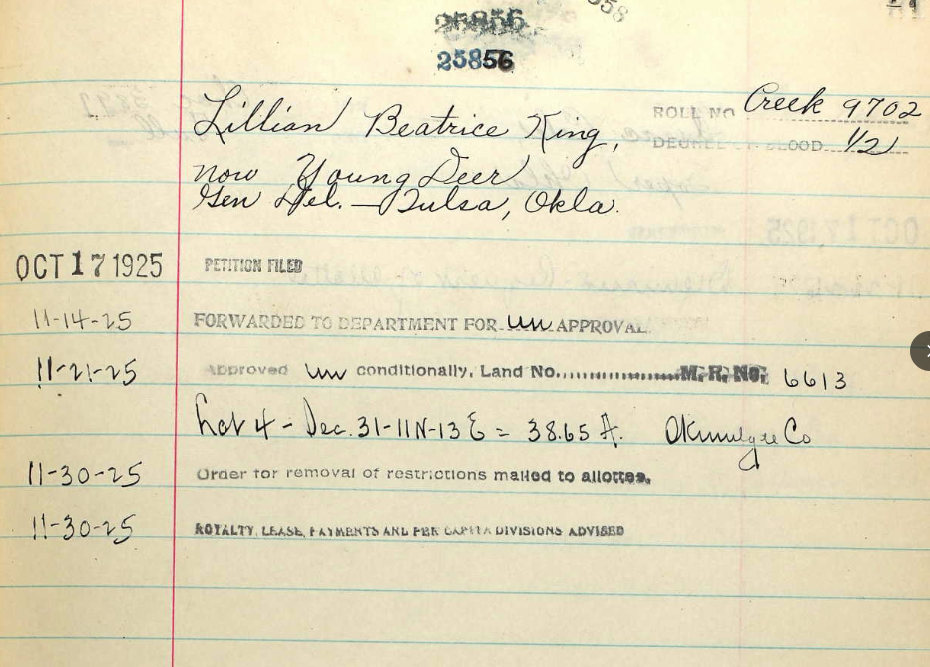 25856
25856
Lillian Beatrice King,
ROLL NO Creek 9702
now Young Deer
DEGREE OF BLOOD 1/2
Gen Del. — Tulsa, Okla.
OCT 17 1925 PETITION FILED
11-14-25 FORWARDED TO DEPARTMENT FOR un APPROVAL.
11-21-25 Approved un conditionally, Land No. M. R. No. 6613
Lot 4 - Sec. 31-11N-13E = 38.65 A. Okmulgee Co
11-30-25 Order for removal of restrictions mailed to allottee.
11-30-25 ROYALTY, LEASE, PAYMENTS AND PER CAPITA DIVISIONS ADVISED